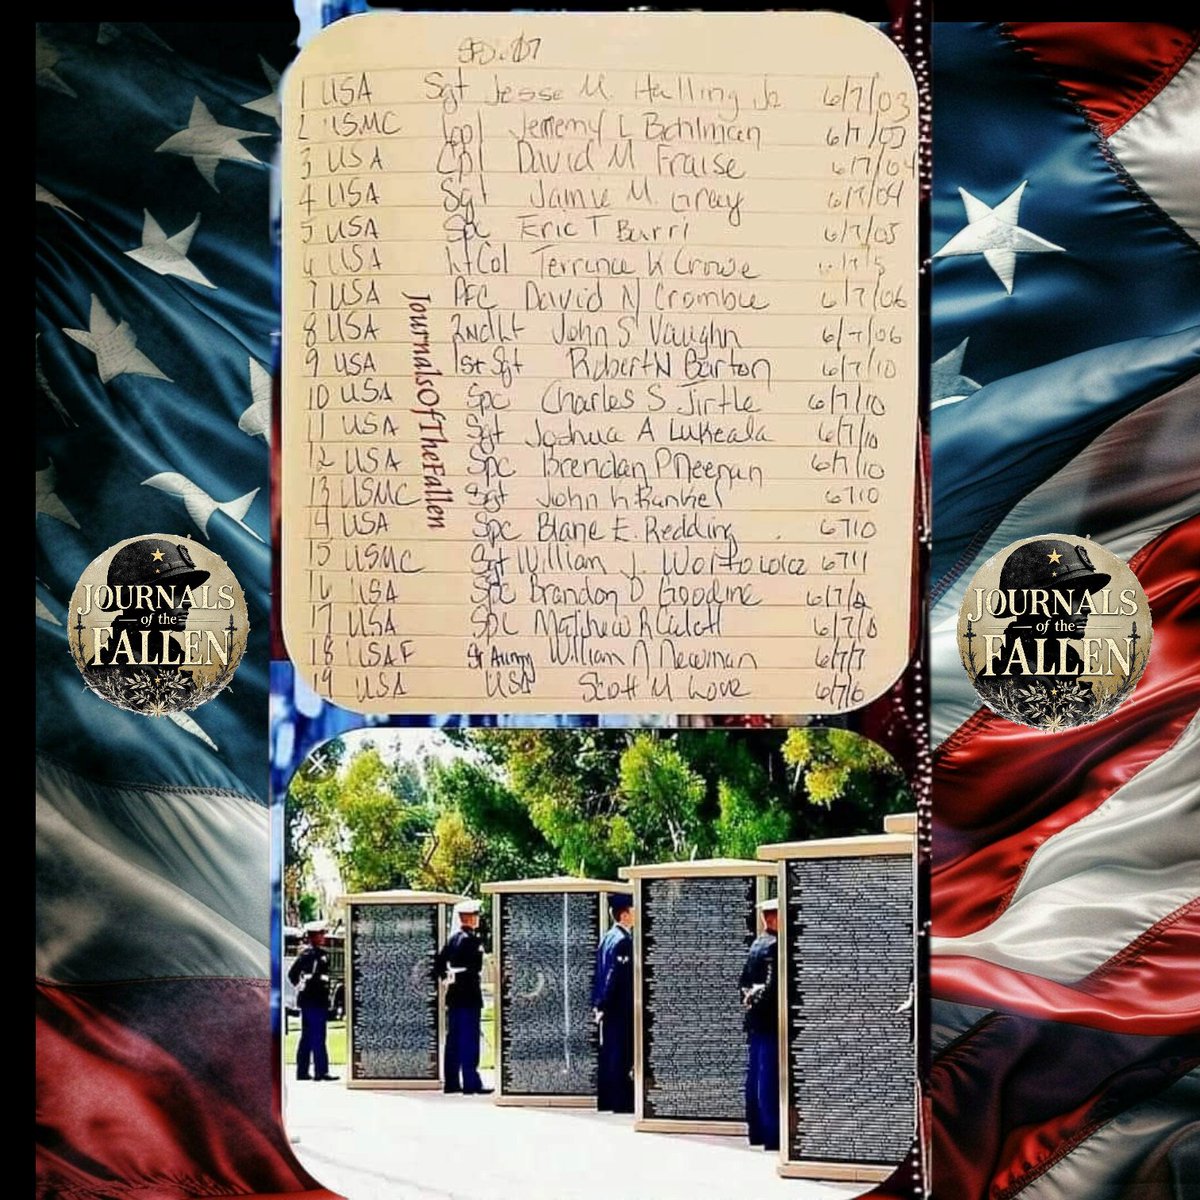 1 USA Sgt Jesse M. Halling Jr 6/7/03
2 USMC Cpl Jeremy L Bohlman 6/7/03
3 USA Cpl David M Fraise 6/7/04
4 USA Sgt Jamie M. Gray 6/7/04
5 USA Spc Eric T Burri 6/7/05
6 USA LtCol Terrence K Crowe 6/7/5
7 USA PFC David N Crombie 6/7/06
8 USA 2nd Lt John S Vaughn 6/7/06
9 USA 1st Sgt Robert N Barton 6/7/10
10 USA Spc Charles S Jirtle 6/7/10
11 USA Sgt Joshua A Lukeala 6/7/10
12 USA Spc Brendan P Neenan 6/7/10
13 USMC Sgt John K Rankel 6710
14 USA Spc Blane E. Redding 6710
15 USMC Sgt William J. Woitowicz 6711
16 USA Spc Brandon D Goodine 6/7/
17 USA Spc Matthew R Catlett 6/7/
18 USAF Sr William N Newman 6/7/7
19 USA USA Scott M Love 6/7/6
JournalsOfTheFallen
JOURNALS
of the
FALLEN
JOURNALS
of the
FALLEN